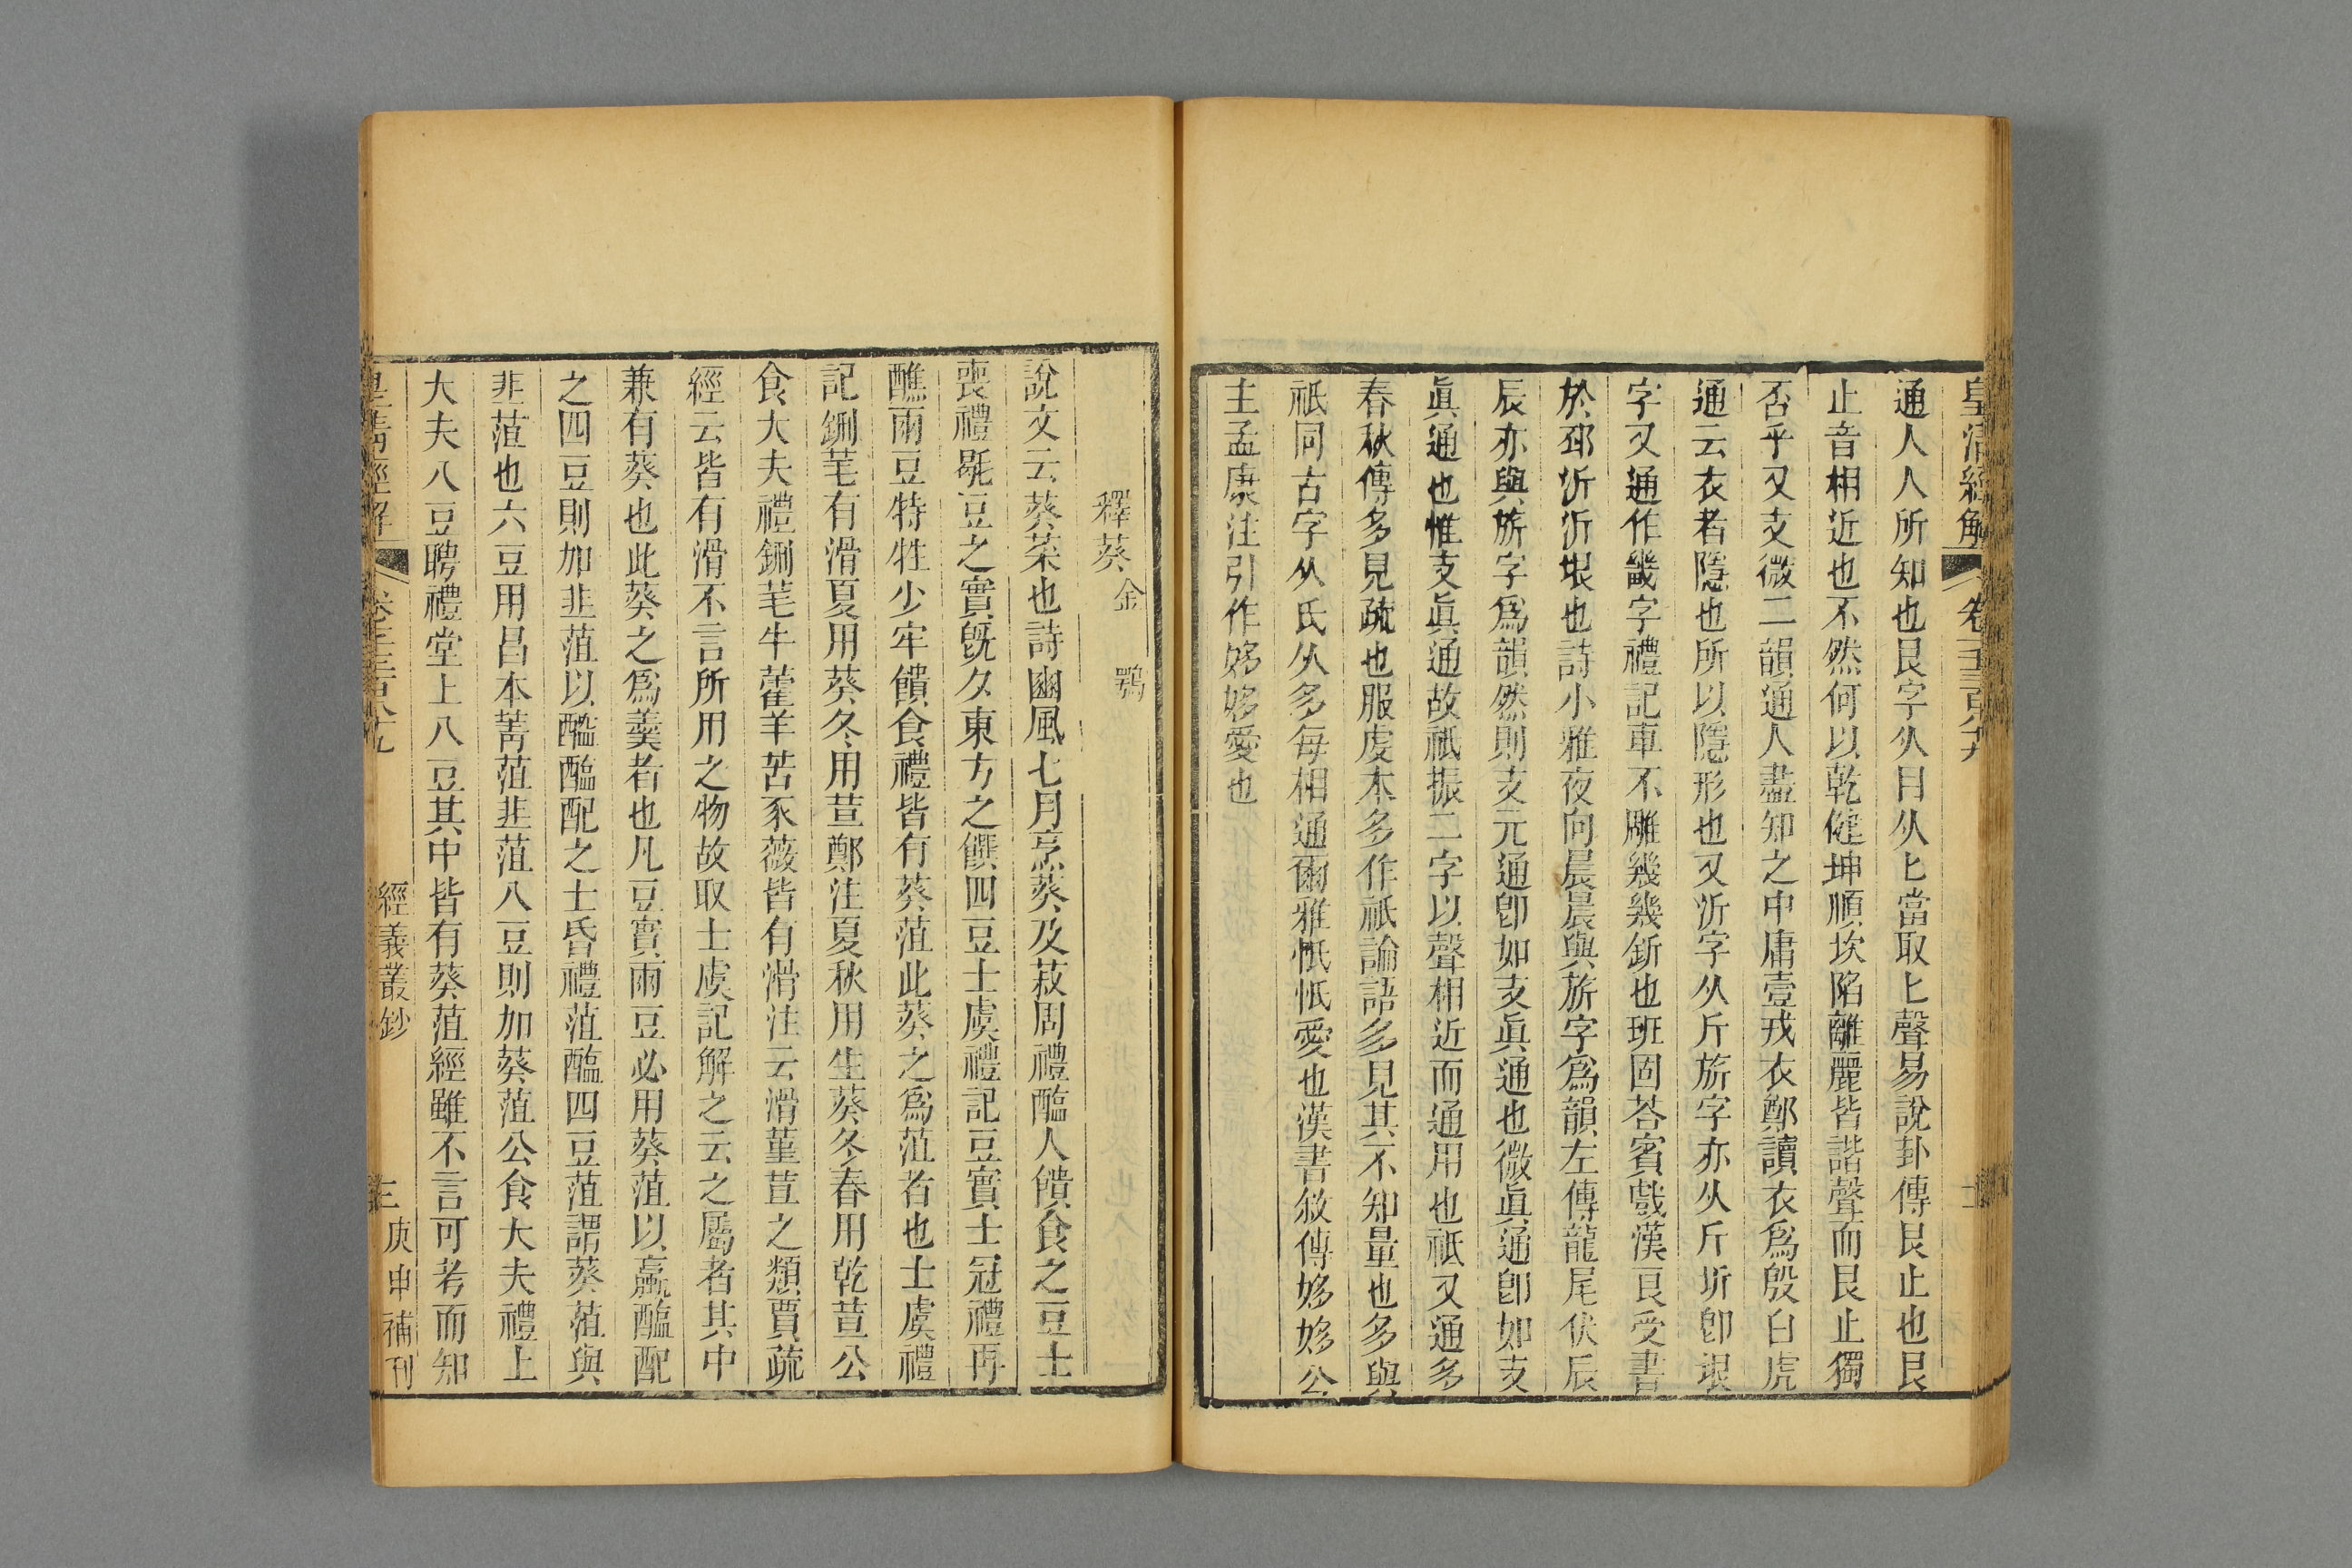 皇清經解
卷一千三百八十九
通人人所知也艮字从目从匕當取匕聲易說卦傳艮止也艮
止音相近也不然何以乾健坤順坎陷離麗皆諧聲而艮止獨
否乎又支微二韻通人盡知之中庸壹戎衣鄭讀衣爲殷白虎
通云衣者隱也所以隱形也又沂字从斤旂字亦从斤圻卽垠
字又通作畿字禮記車不雕幾幾釿也班固荅賓戲漢良受書
於邳沂沂垠也詩小雅夜向晨晨與旂字爲韻左傳龍尾伏辰
辰亦與旂字爲韻然則支元通卽如支眞通也微眞通卽如支
眞通也惟支眞通故祗振二字以聲相近而通用也祗又通多
春秋傳多見疏也服虔本多作祇論語多見其不知量也多與
祇同古字从氏从多每相通爾雅恀恀愛也漢書敘傳姼姼公
主孟康注引作姼姼愛也
釋葵 金鶚
說文云葵菜也詩豳風七月烹葵及菽周禮醢人饋食之豆士
喪禮毼豆之實旣夕東方之饌四豆士虞禮記豆實士冠禮再
醮兩豆特牲少牢饋食禮皆有葵菹此葵之爲菹者也士虞禮
記鉶芼有滑夏用葵冬用荁鄭注夏秋用生葵冬春用乾荁公
食大夫禮鉶芼牛藿羊苦豕薇皆有滑注云滑堇荁之類賈疏
經云皆有滑不言所用之物故取士虞記解之云之屬者其中
兼有葵也此葵之爲羹者也凡豆實兩豆必用葵菹以蠃醢配
之四豆則加韭菹以醓醢配之士昏禮菹醢四豆菹謂葵菹與
韭菹也六豆用昌本菁菹韭菹八豆則加葵菹公食大夫禮上
大夫八豆聘禮堂上八豆其中皆有葵菹經雖不言可考而知
皇清經解
經義叢鈔
庚申補刊